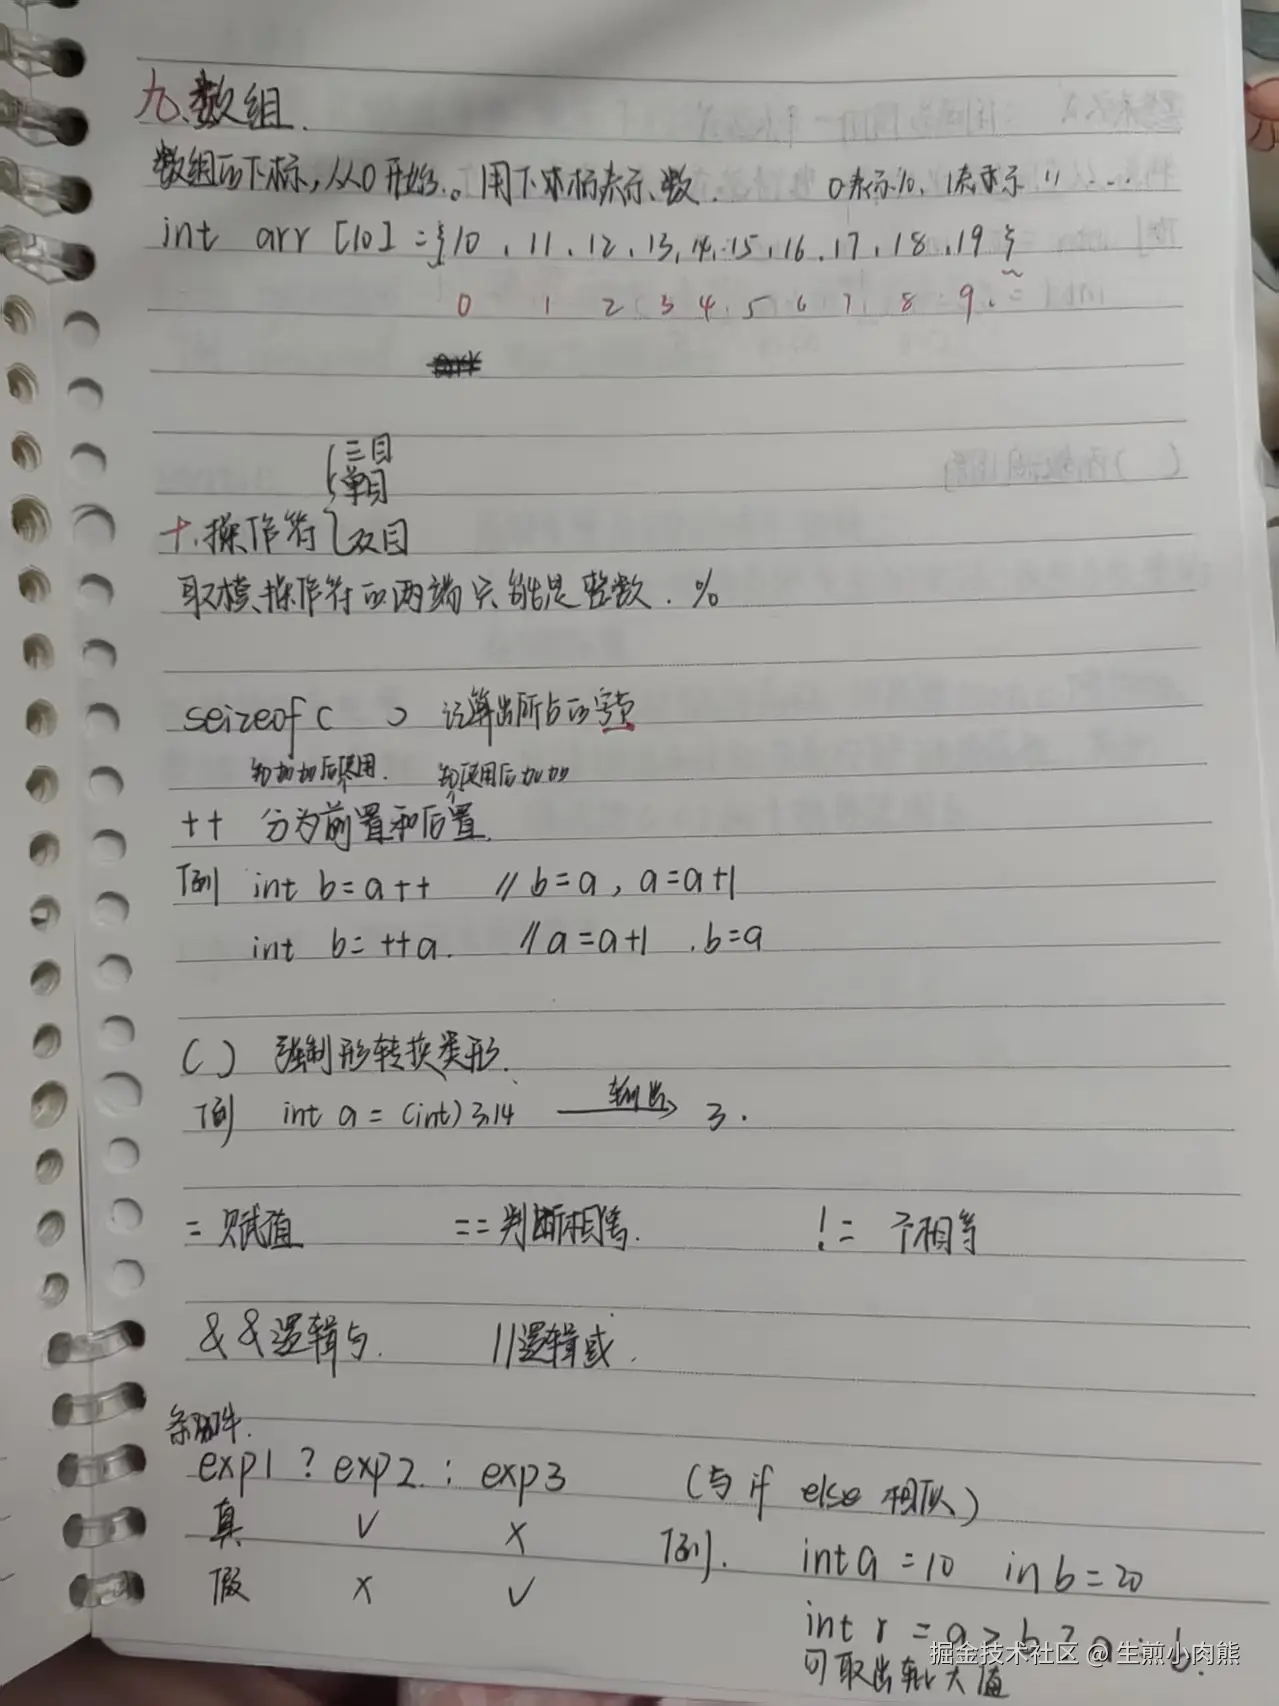 九、数组.
数组的下标,从0开始。用下标表示数. 0表示10, 1表示11 ....
int arr [10] = {10, 11, 12, 13, 14, 15, 16, 17, 18, 19}
0 1 2 3 4. 5 6 7. 8 9.
三目
单目
十.操作符 双目
取模操作符的两端只能是整数. %
seizeof ( ) 计算出所占的字节
先加加后使用. 先使用后加加
++ 分为前置和后置.
例 int b=a++ // b=a, a=a+1
int b=++a. // a=a+1 .b=a
( ) 强制形转换类形.
例 int a = (int) 3.14 输出 3.
= 赋值 == 判断相等. != 不相等
&& 逻辑与. || 逻辑或.
条件.
exp1 ? exp2 : exp3 (与 if else 相似)
真 √ × 例. int a =10 in b=20
假 × √
int r = a > b ? a : b.
可取出较大值
掘金技术社区 @ 生煎小肉熊